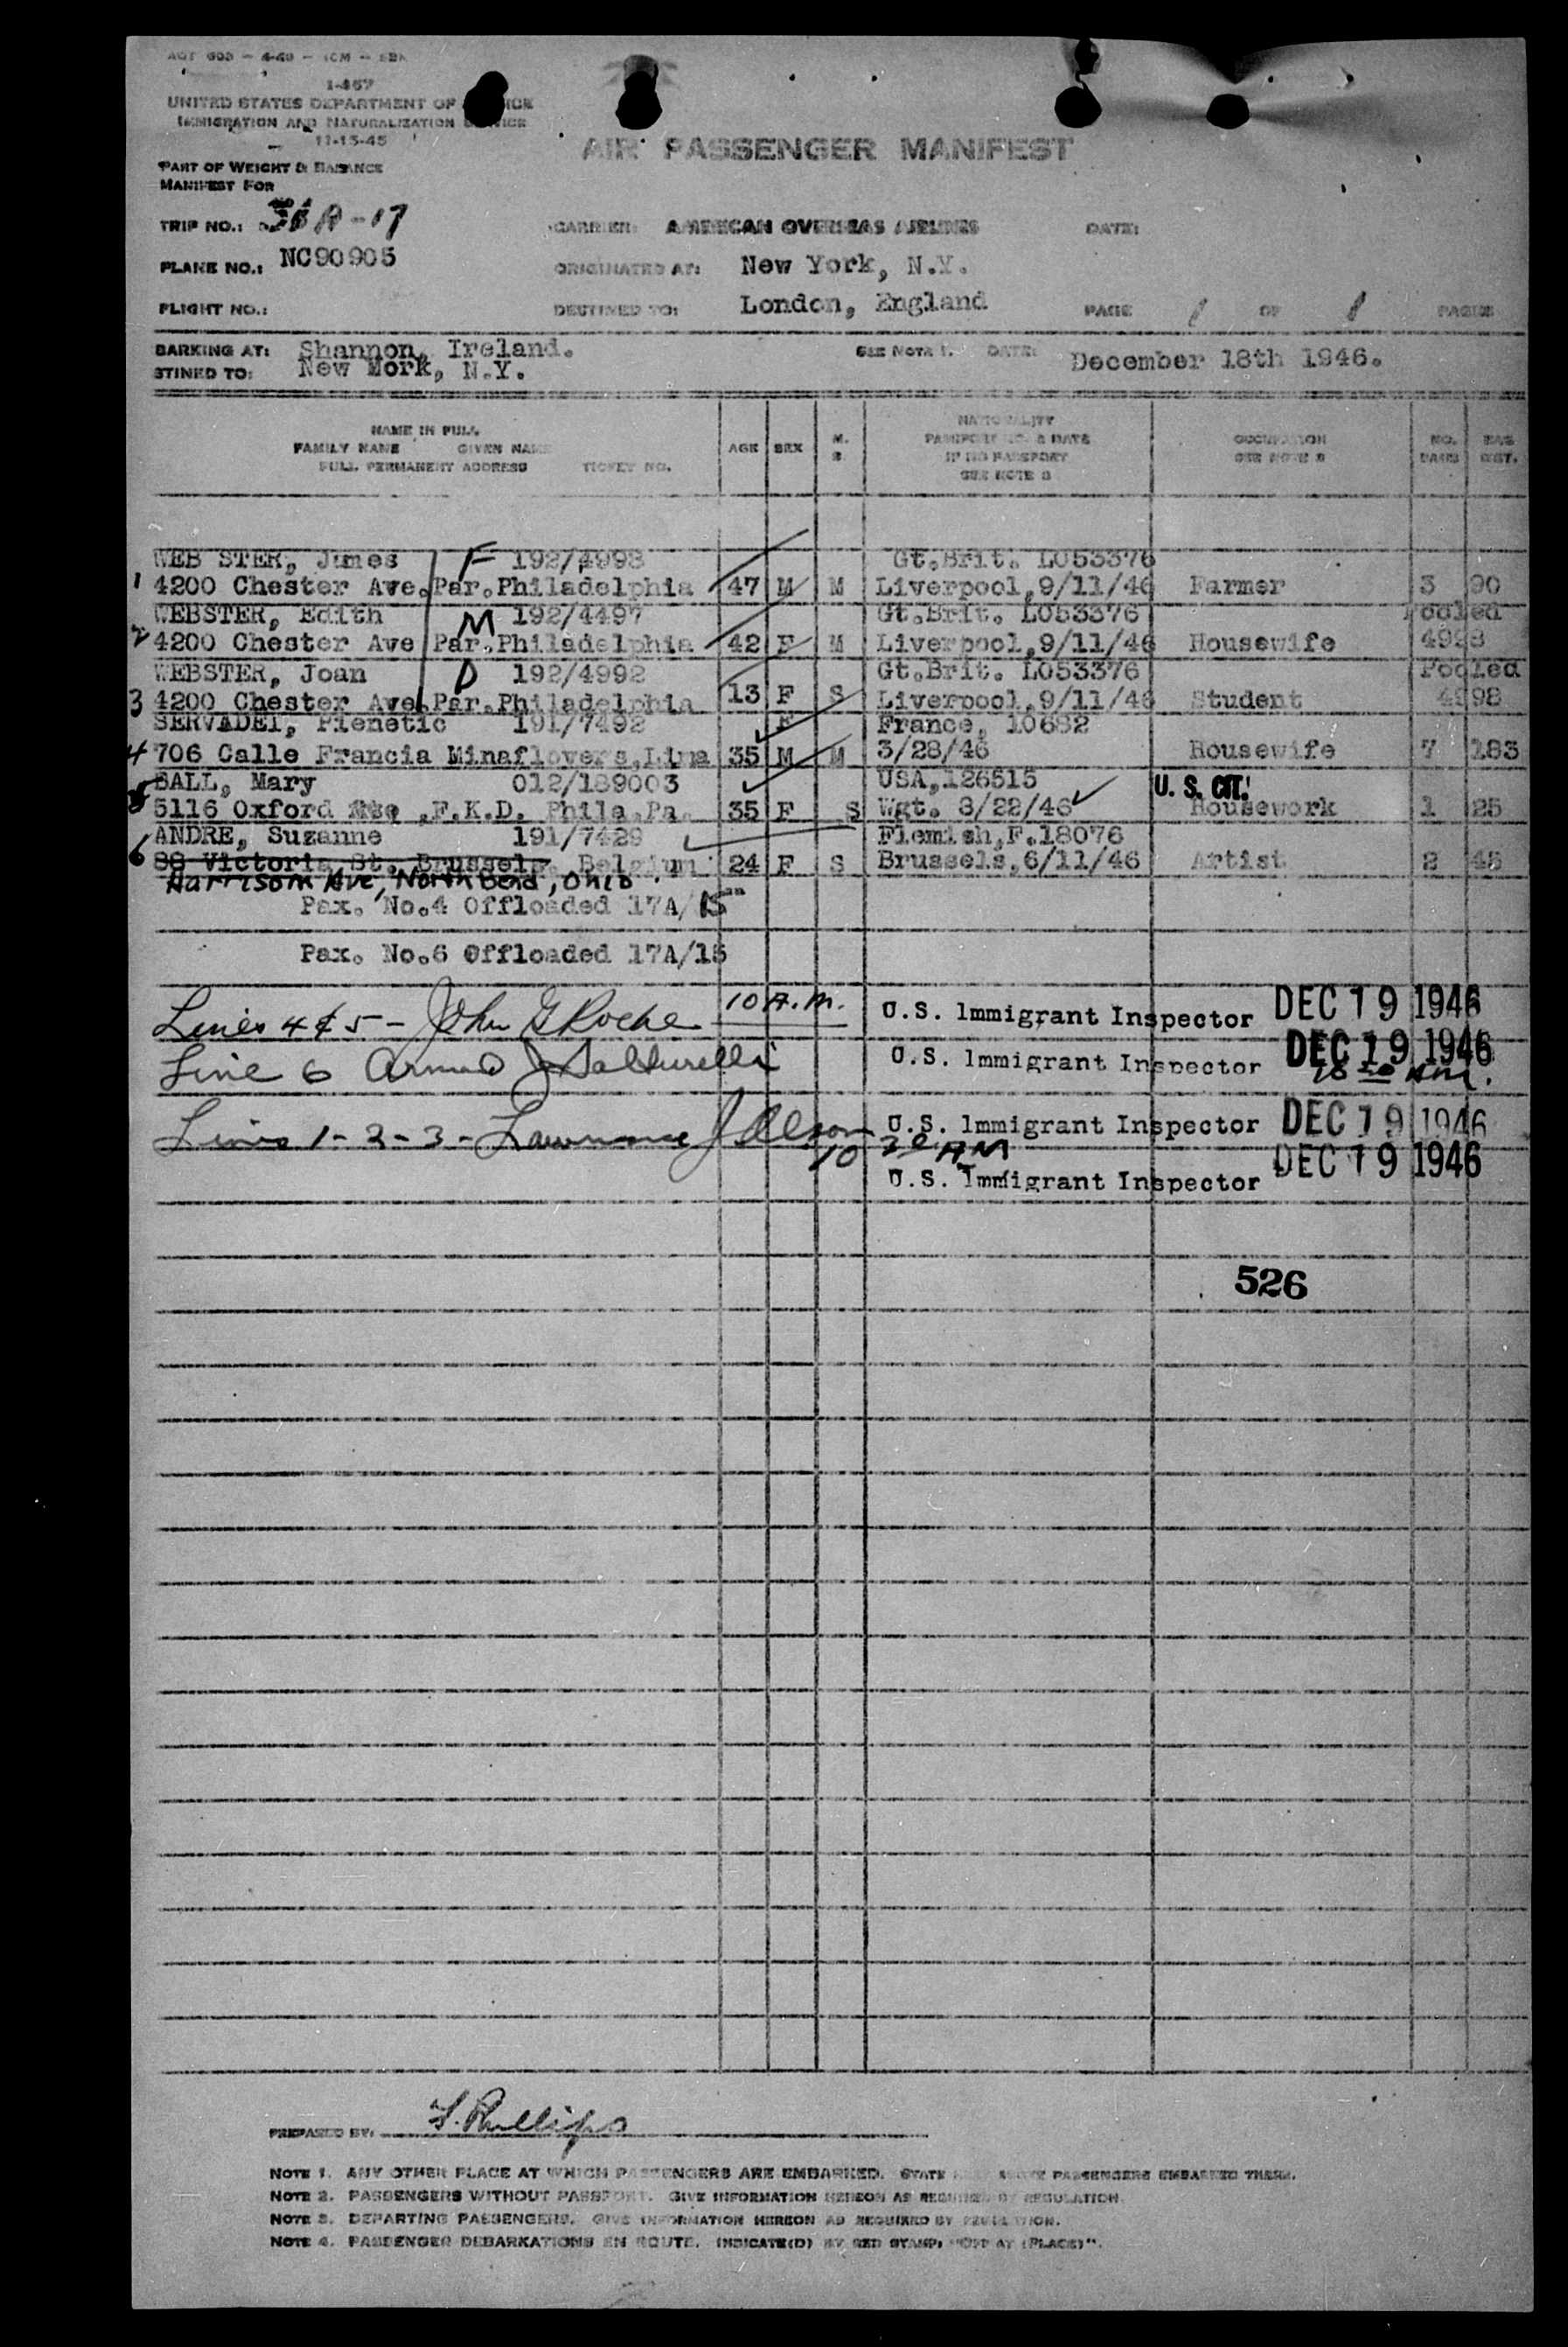 I-467
UNITED STATES DEPARTMENT OF
IMMIGRATION AND NATURALIZATION
11-15-45
AIR PASSENGER MANIFEST
PART OF WEIGHT & BALANCE
MANIFEST FOR
TRIP NO.: A-17 CARRIER: AMERICAN OVERSEAS AIRLINES DATE:
PLANE NO.: NC90905 ORIGINATED AT: New York, N.Y.
FLIGHT NO.: DESTINED TO: London, England PAGE 1 OF 1 PAGES
BARKING AT: Shannon, Ireland. SEE NOTE 1. DATE: December 18th 1946.
STINED TO: New Mork, N.Y.
NAME IN FULL
FAMILY NAME GIVEN NAME
FULL PERMANENT ADDRESS TICKET NO. AGE SEX M. S NATIONALITY PASSPORT NO. & DATE IF NO PASSPORT SEE NOTE 2 OCCUPATION SEE NOTE 2 NO. BAGS BAG WGT.
WEB STER, James F 192/4998 Gt.Brit. L053376
1 4200 Chester Ave.Par.Philadelphia 47 M M Liverpool,9/11/46 Farmer 3 90
WEBSTER, Edith M 192/4497 Gt.Brit. L053376 Pooled
2 4200 Chester Ave Par.Philadelphia 42 F M Liverpool,9/11/46 Housewife 4998
WEBSTER, Joan D 192/4992 Gt.Brit. L053376 Pooled
3 4200 Chester Ave.Par.Philadelphia 13 F S Liverpool,9/11/46 Student 4998
SERVADEI, Pienetic 191/7492 F France, 10682
4 706 Calle Francia Minaflovers,Lima 35 M M 3/28/46 Housewife 7 183
BALL, Mary 012/189003 USA,126515 U. S. CIT.
5 5116 Oxford ,F.K.D. Phila.Pa. 35 F S Wgt. 8/22/46 Housework 1 25
ANDRE, Suzanne 191/7429 Flemish,F.18076
6 88 Victoria St. Brussels, Belgium 24 F S Brussels,6/11/46 Artist 2 45
Harrison Ave, North Bend, Ohio.
Pax. No.4 Offloaded 17A/15
Pax. No.6 Offloaded 17A/15
Lines 4 & 5 - John G Roche 10 A.M. U.S. Immigrant Inspector DEC 19 1946
Line 6 U.S. Immigrant Inspector DEC 19 1946
AM.
Lines 1-2-3- Lawrence J Olson U.S. Immigrant Inspector DEC 19 1946
10 AM
U.S. Immigrant Inspector DEC 19 1946
526
PREPARED BY: Phillips
NOTE 1. ANY OTHER PLACE AT WHICH PASSENGERS ARE EMBARKED. STATE PASSENGERS EMBARKED THERE.
NOTE 2. PASSENGERS WITHOUT PASSPORT. GIVE INFORMATION HEREON AS REQUIRED BY REGULATION.
NOTE 3. DEPARTING PASSENGERS. GIVE INFORMATION HEREON AS REQUIRED BY REGULATION.
NOTE 4. PASSENGER DEBARKATIONS EN ROUTE. INDICATE(D) BY RED STAMP: "OFF AT (PLACE)".